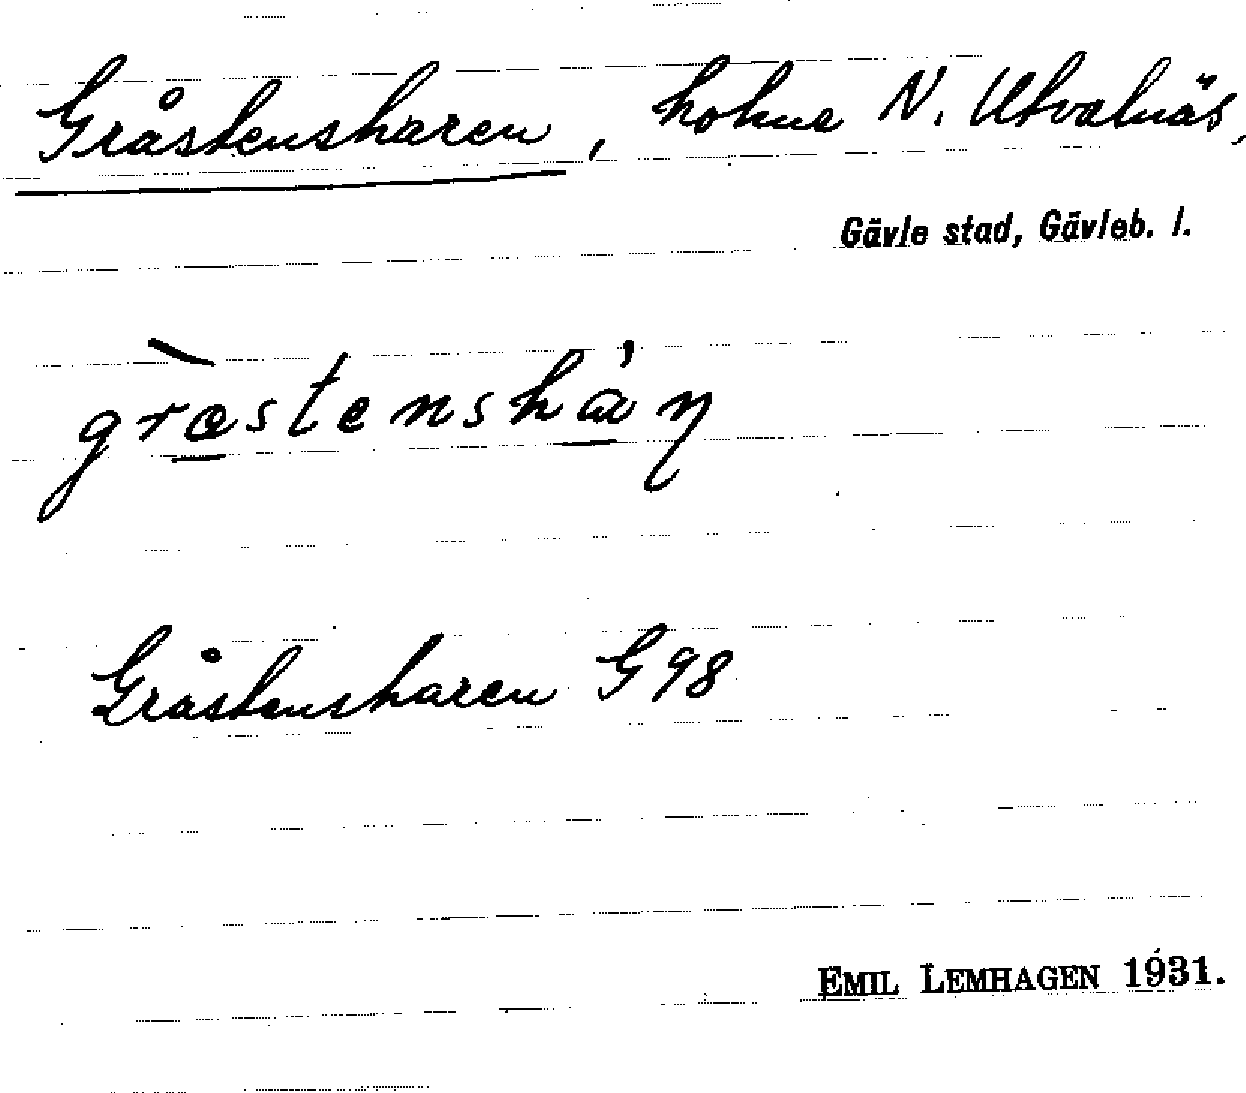 Gråstensharen, holme N. Utvalnäs,
Gävle stad, Gävleb. l.
Gråstensharen G 98
EMIL LEMHAGEN 1931.